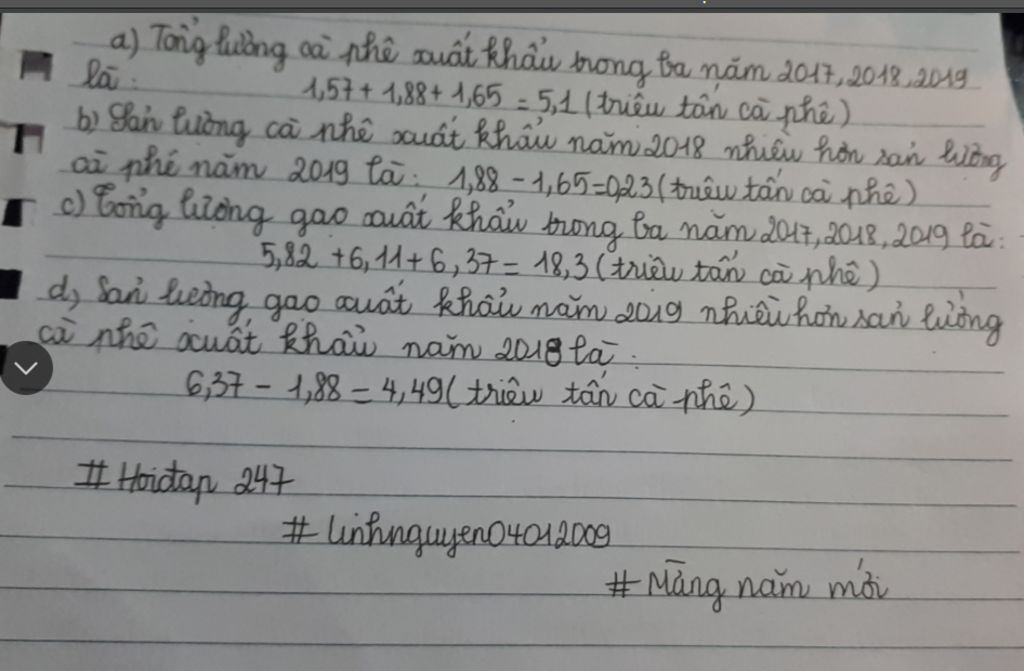 a) Tổng lường cà phê xuất khẩu trong ba năm 2017, 2018, 2019
là:
1,57 + 1,88 + 1,65 = 5,1 (triệu tấn cà phê)
b) Sản lường cà phê xuất khẩu năm 2018 nhiều hơn sản lường
cà phê năm 2019 là: 1,88 - 1,65 = 0,23 (triệu tấn cà phê)
c) Tổng lường gạo xuất khẩu trong ba năm 2017, 2018, 2019 là:
5,82 + 6,11 + 6,37 = 18,3 (triệu tấn cà phê)
d, Sản lường gạo xuất khẩu năm 2019 nhiều hơn sản lường
cà phê xuất khẩu năm 2018 là:
6,37 - 1,88 = 4,49 (triệu tấn cà phê)
# Hoidap 247
# linhnguyen04012009
# Mảng năm mới